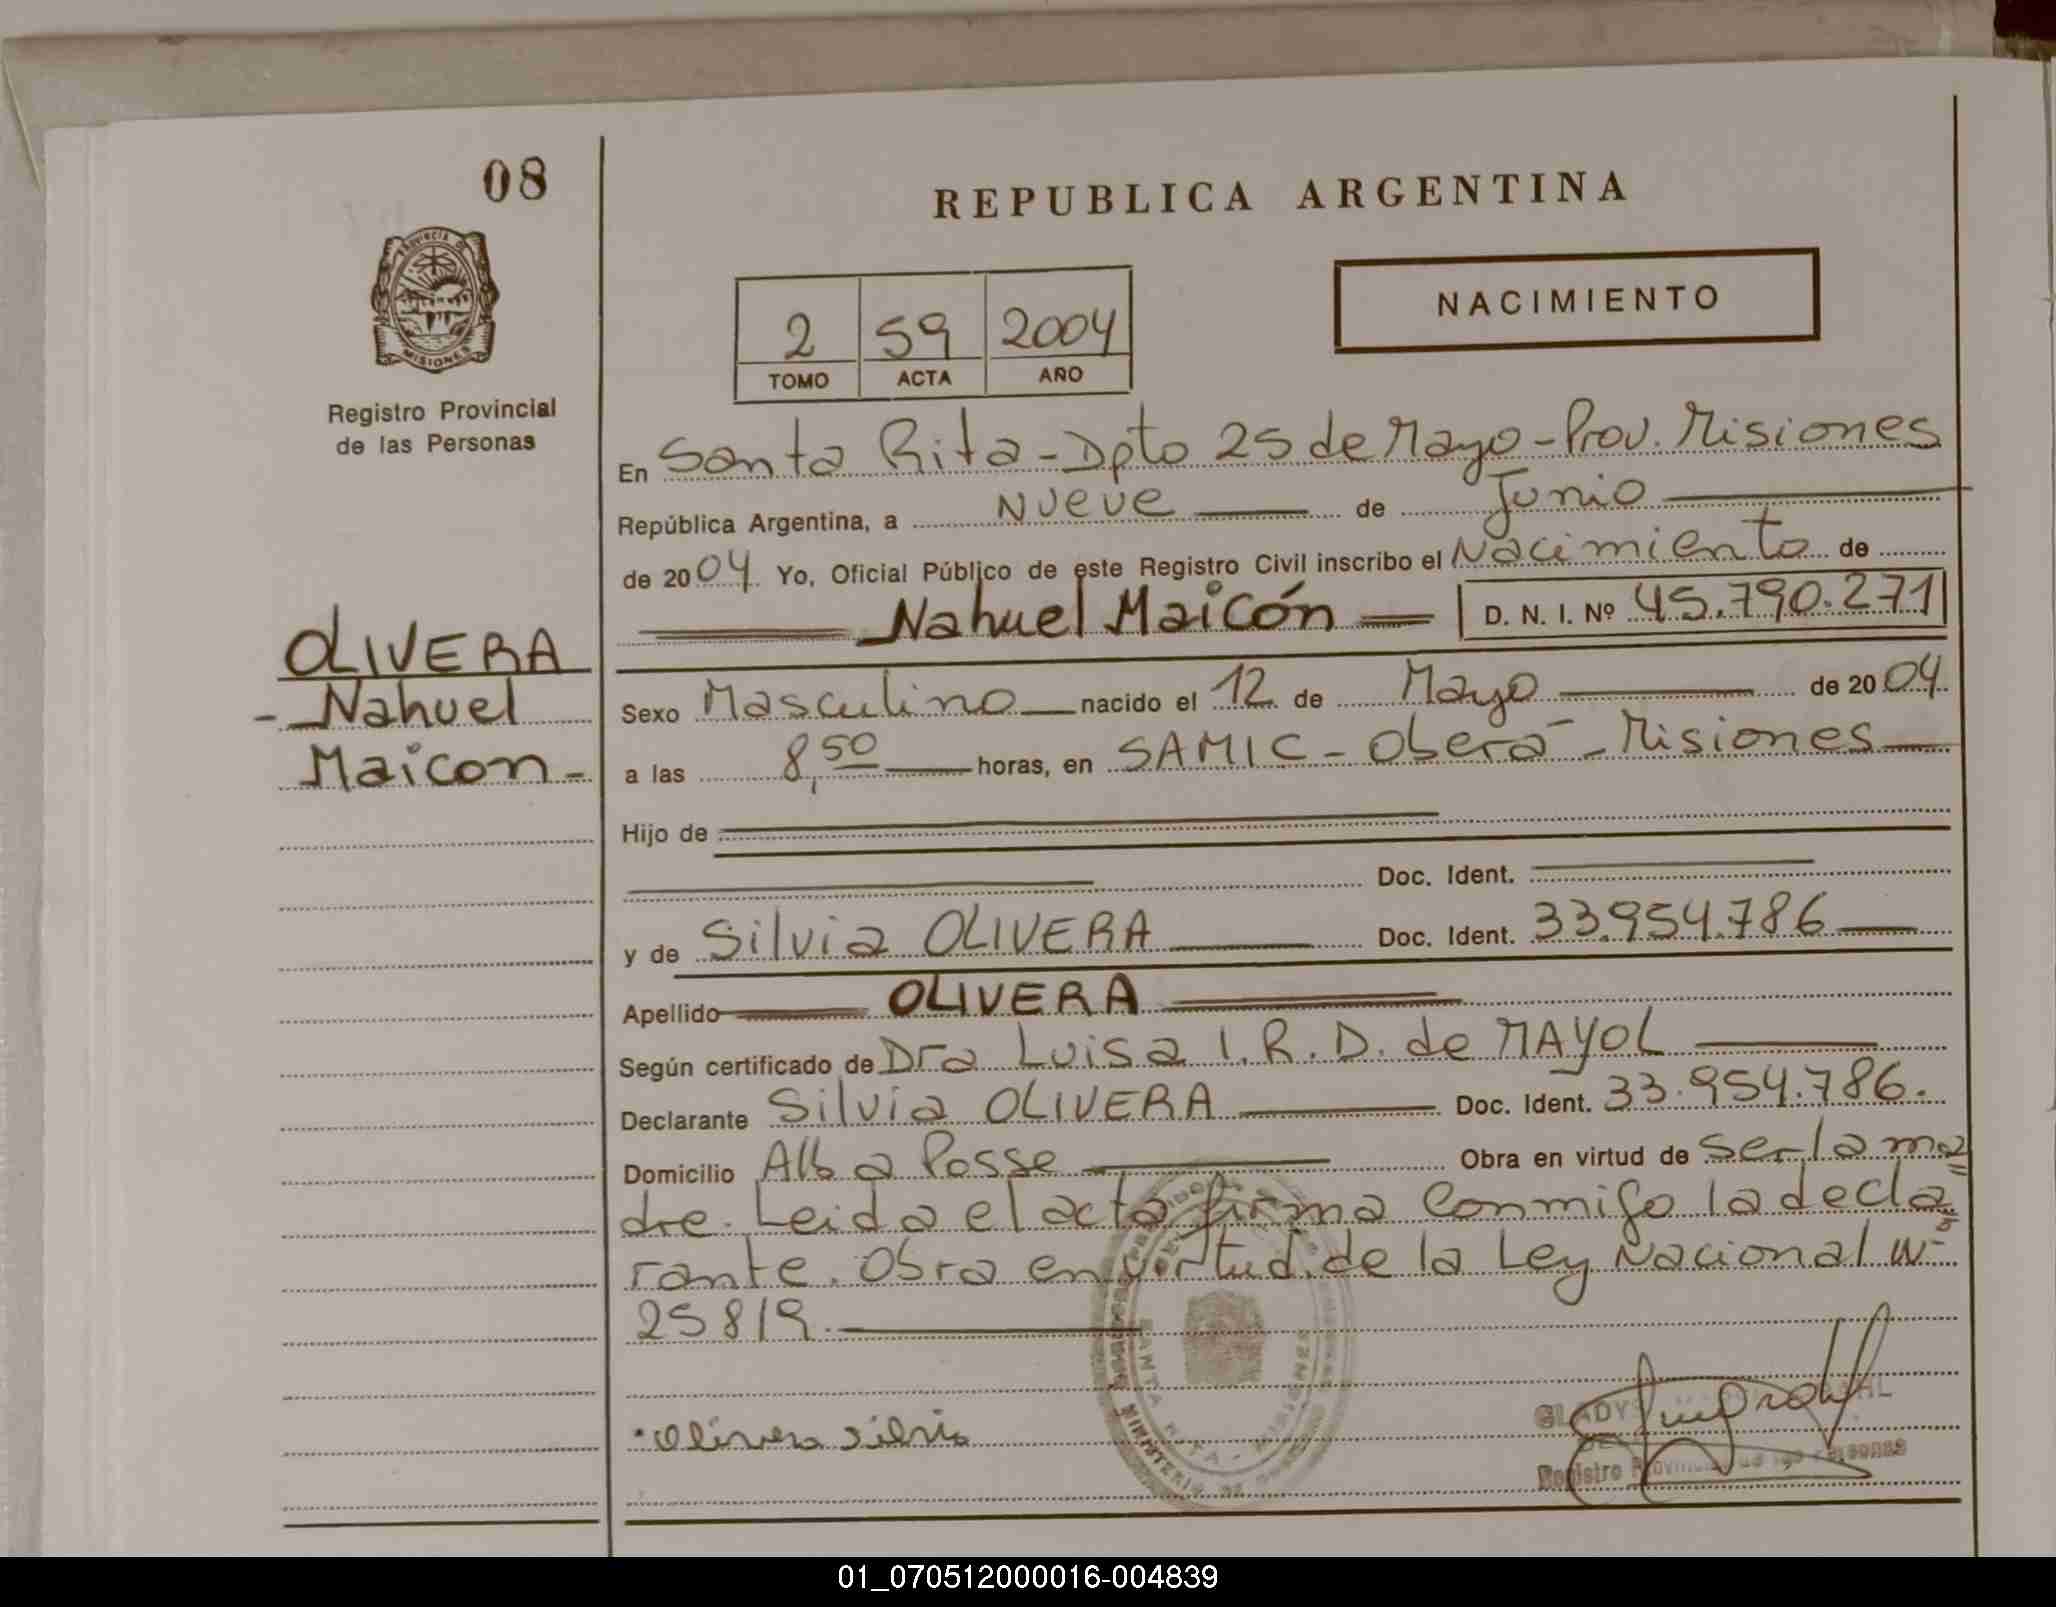 08
REPUBLICA ARGENTINA
PROVINCIA DE
MISIONES
NACIMIENTO
2 59 2004
TOMO ACTA AÑO
Registro Provincial
de las Personas
En Santa Rita - Dpto 25 de Mayo - Prov. Misiones
República Argentina, a Nueve de Junio
de 2004 Yo, Oficial Público de este Registro Civil inscribo el Nacimiento de
Nahuel Maicón D. N. I. Nº 45.790.271
OLIVERA
- Nahuel
Maicon -
Sexo Masculino nacido el 12 de Mayo de 2004
a las 8,50 horas, en SAMIC - Oberá - Misiones
Hijo de
Doc. Ident.
y de Silvia OLIVERA Doc. Ident. 33.954.786
Apellido OLIVERA
Según certificado de Dra Luisa I. R. D. de MAYOL
Declarante Silvia OLIVERA Doc. Ident. 33.954.786.
Domicilio Alba Posse Obra en virtud de ser la ma
dre. Leida el acta firma conmigo la decla
rante. Obra en virtud de la Ley Nacional Nº
25819.
SANTA RITA - MISIONES
MINISTERIO DE
Olivera Silvia
GLADYS
Registro Provincial de las Personas
01_070512000016-004839